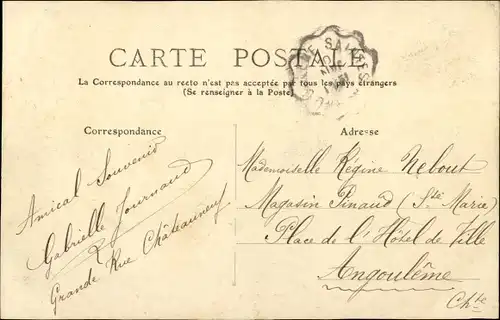 CARTE POSTALE
La Correspondance au recto n'est pas acceptée par tous les pays étrangers
(Se renseigner à la Poste)
Correspondance
Amical Souvenir
Gabrielle Journaud
Grande Rue Châteauneuf
Adresse
Mademoiselle Régine Nebout
Magasin Pinaud (Ste Marie)
Place de l'Hôtel de Ville
Angoulême
Chte